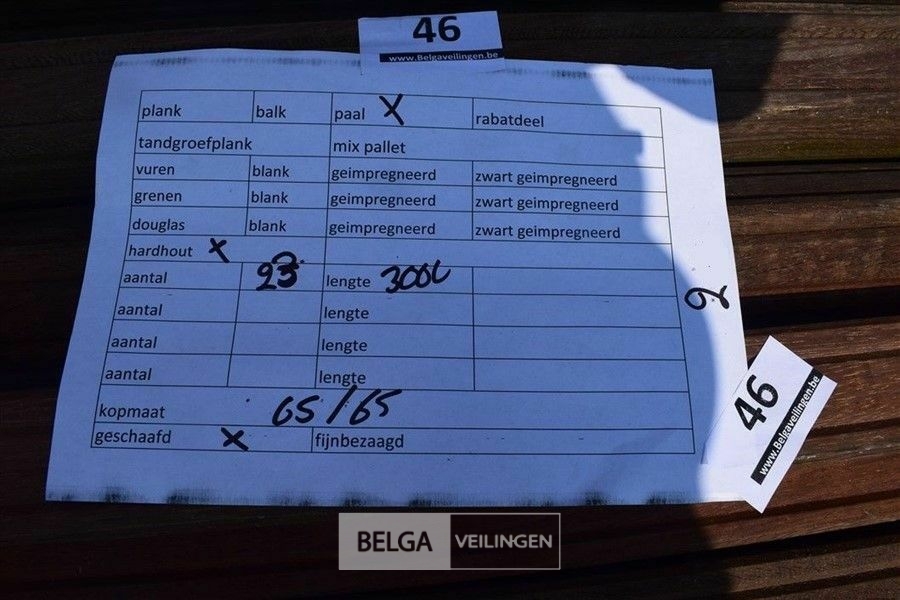 46
www.Belgaveilingen.be
plank balk paal X rabatdeel
tandgroefplank mix pallet
vuren blank geimpregneerd zwart geimpregneerd
grenen blank geimpregneerd zwart geimpregneerd
douglas blank geimpregneerd zwart geimpregneerd
hardhout X
aantal lengte 3000
aantal lengte
aantal lengte
aantal lengte
kopmaat 65/65
geschaafd X fijnbezaagd
46
www.Belgaveilingen.be
BELGA VEILINGEN